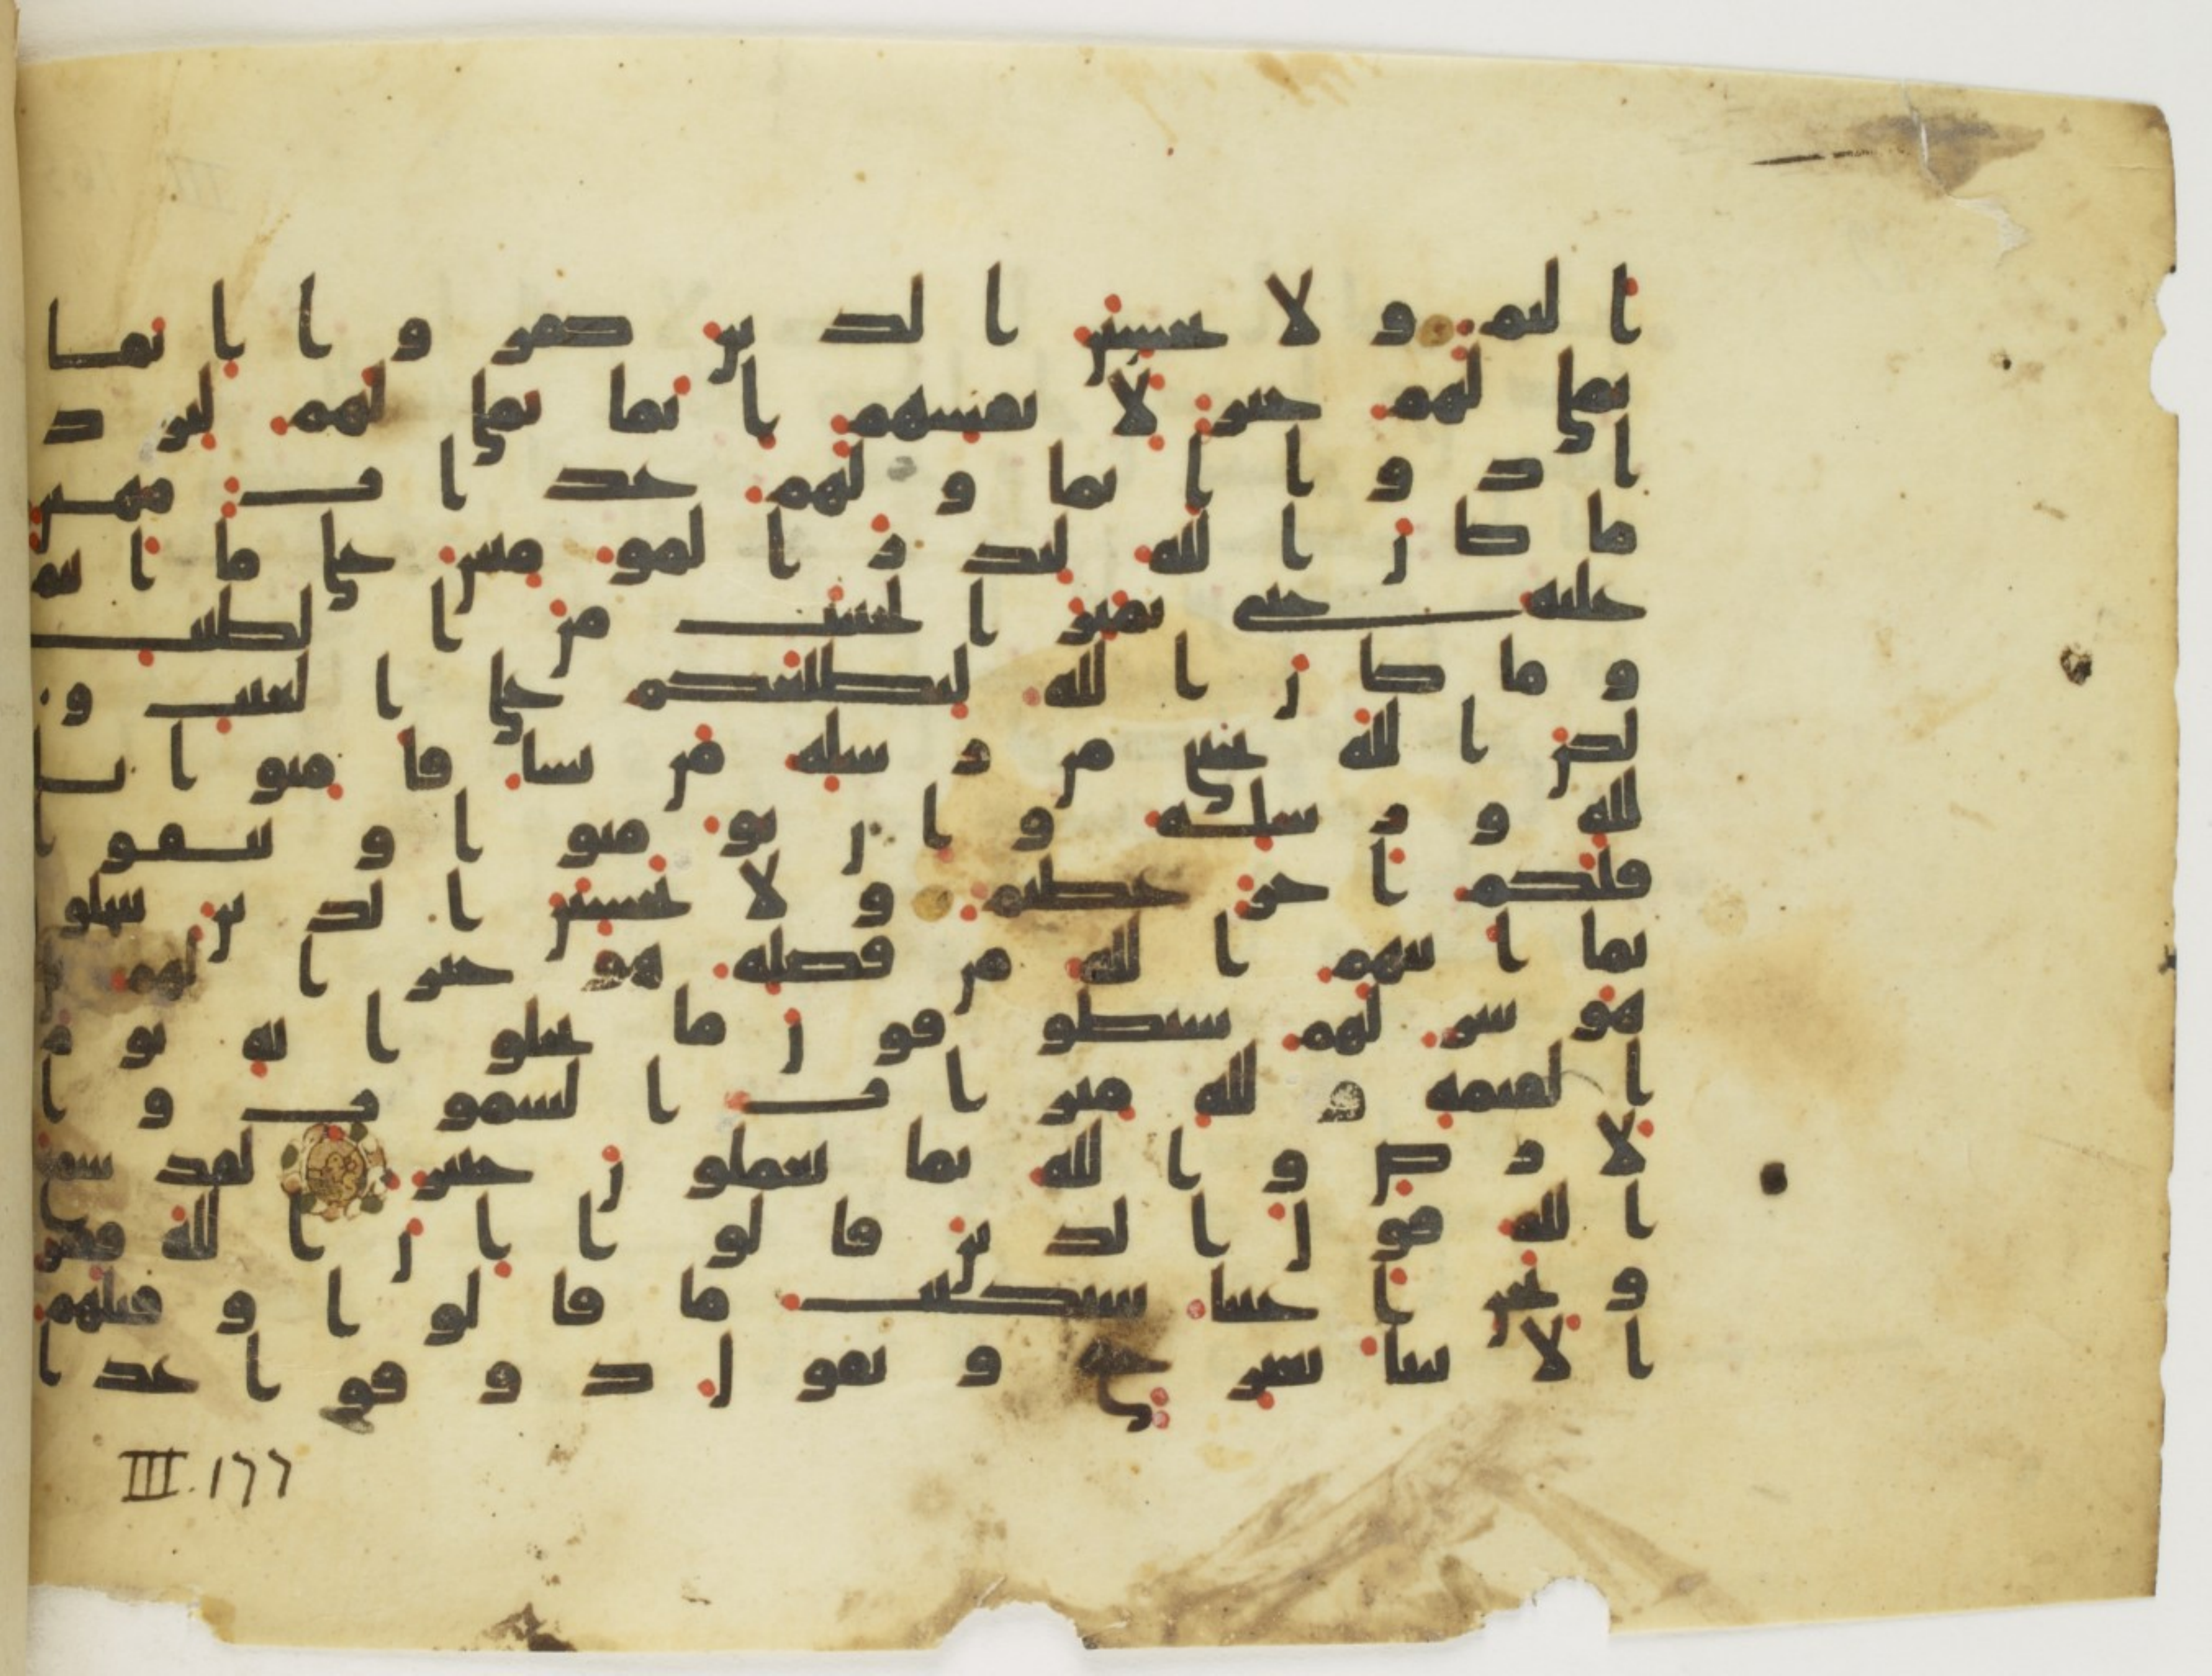 اليم ولا يحسبن الذين كفروا انما
نملى لهم خير لا نفسهم انما نملى لهم ليزد
ادوا اثما ولهم عذاب مهين
ما كان الله ليذر المومنين على ما انتم
عليه حتى يميز الخبيث من الطيب
وما كان الله ليطلعكم على الغيب و
لكن الله يجتبى من رسله من يشا فامنوا با
لله ورسله وان تومنوا وتتقوا
فلكم اجر عظيم ولا يحسبن الذين يبخلون
بما اتيهم الله من فضله هو خيرا لهم بل
هو شر لهم سيطوقون ما بخلوا به يوم
القيمه ولله ميراث السموت وا
لارض والله بما تعملون خبير لقد سمع
الله قول الذين قالوا ان الله فقير
ونحن اغنيا سنكتب ما قالوا وقتلهم
الانبيا بغير حق ونقول ذوقوا عذا
III.177